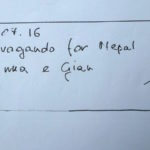 16
vagando for Nepal
e Gian